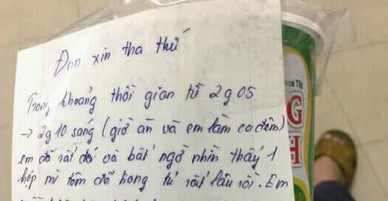 Đơn xin tha thứ
Trong khoảng thời gian từ 2g05
→ 2g10 sáng (giờ ăn và em làm ca đêm)
em đã rất đói và bất ngờ nhìn thấy 1
hộp mì tôm để trong tủ rất lâu rồi. Em
G
H